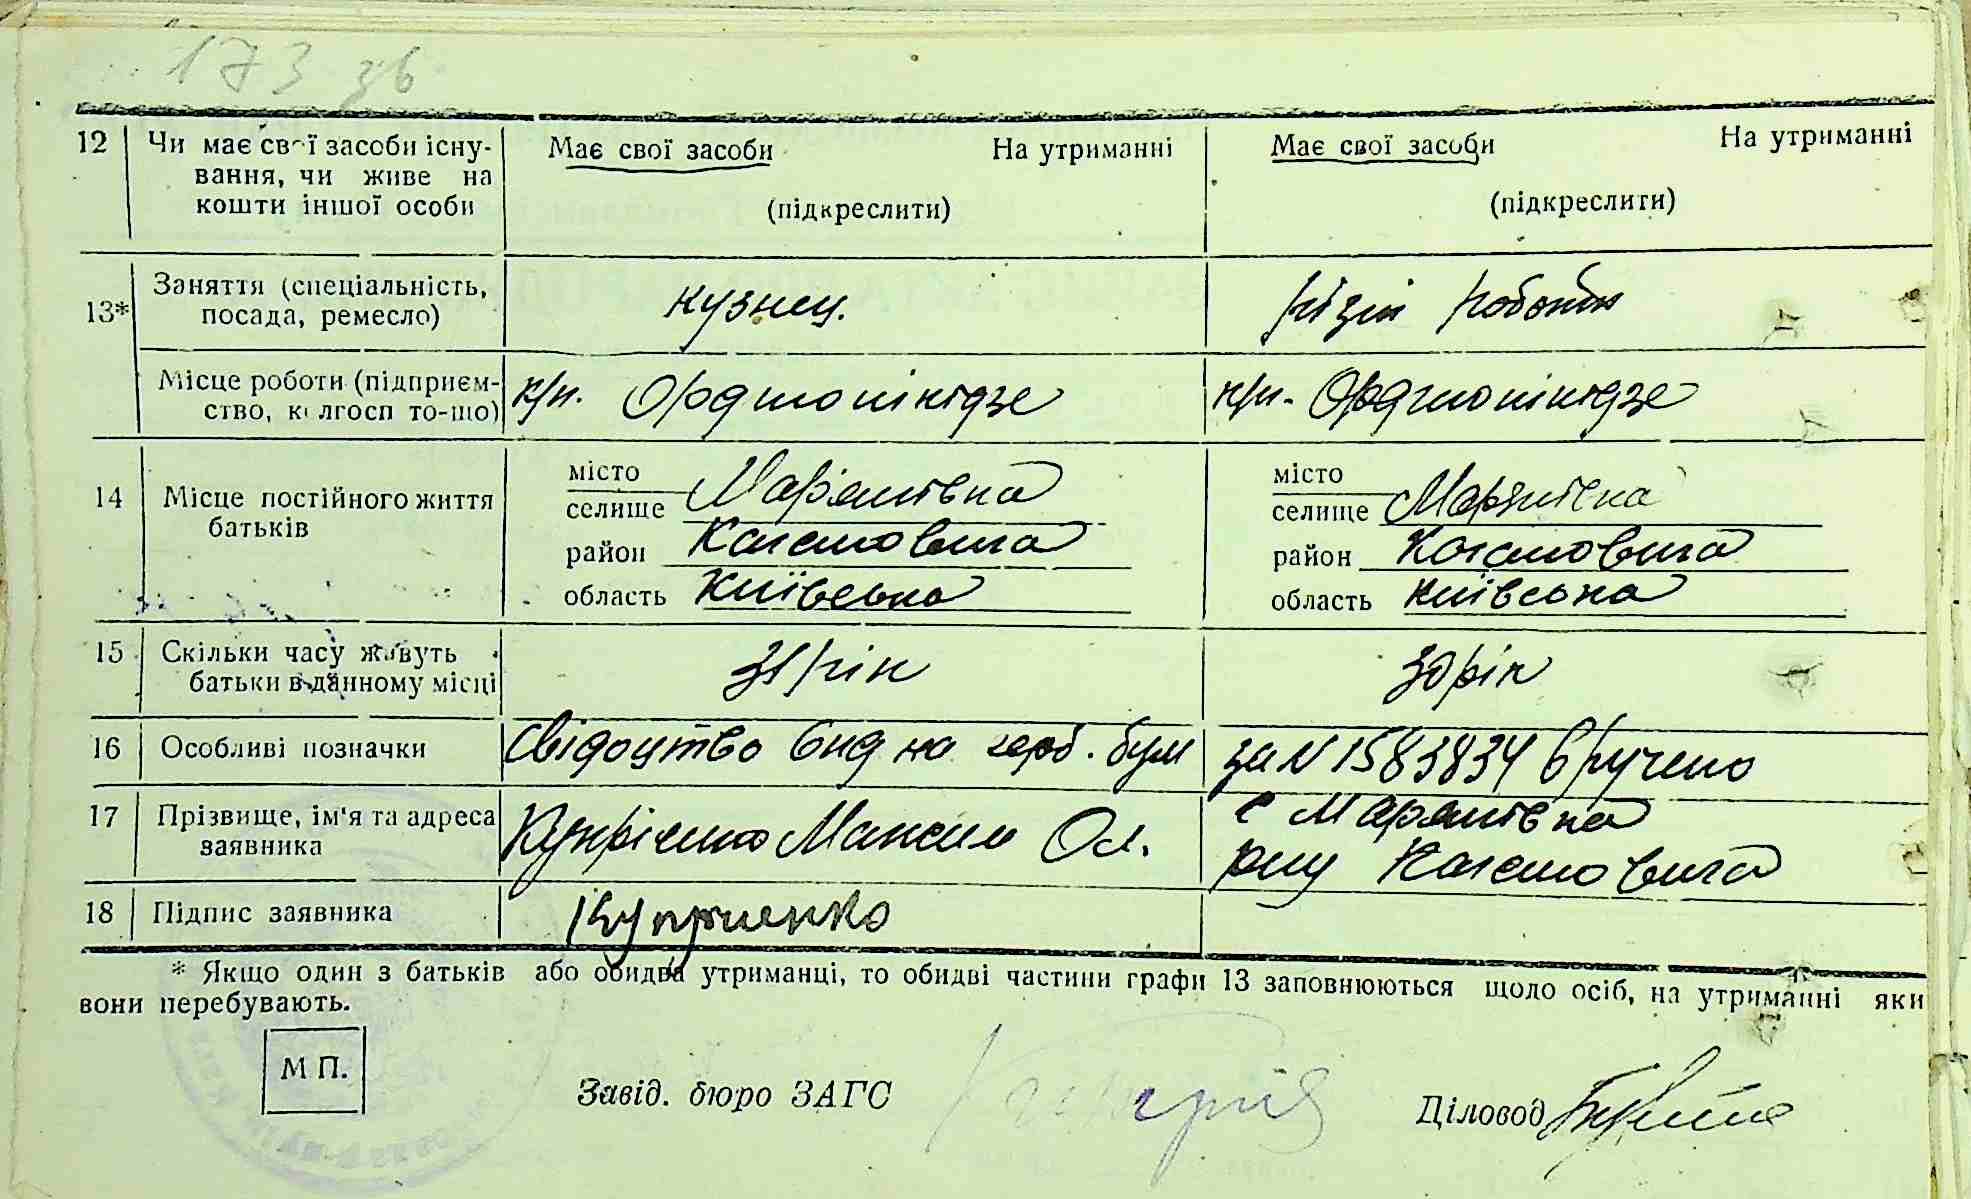 173 зв
12 Чи має свої засоби існу- Має свої засоби На утриманні Має свої засоби На утриманні
вання, чи живе на
кошти іншої особи (підкреслити) (підкреслити)
13* Заняття (спеціальність, кузнец. різні роботи
посада, ремесло)
Місце роботи (підприєм- к/г. Орджонікідзе к/г. Орджонікідзе
ство, колгосп то-що)
14 Місце постійного життя місто Мар'янівка місто Мар'янівка
батьків селище селище
район Кагановича район Кагановича
область Київська область Київська
15 Скільки часу живуть 31 рік 30 рік
батьки в данному місці
16 Особливі позначки Свідоцтво вид на герб. бум за N 1583834 вручено
17 Прізвище, ім'я та адреса Купрієнко Максим Ол. с Мар'янівка
заявника р-ну Кагановича
18 Підпис заявника Куприенко
* Якщо один з батьків або обидва утриманці, то обидві частини графи 13 заповнюються щодо осіб, на утриманні яки
вони перебувають.
М П.
Завід. бюро ЗАГС Діловод